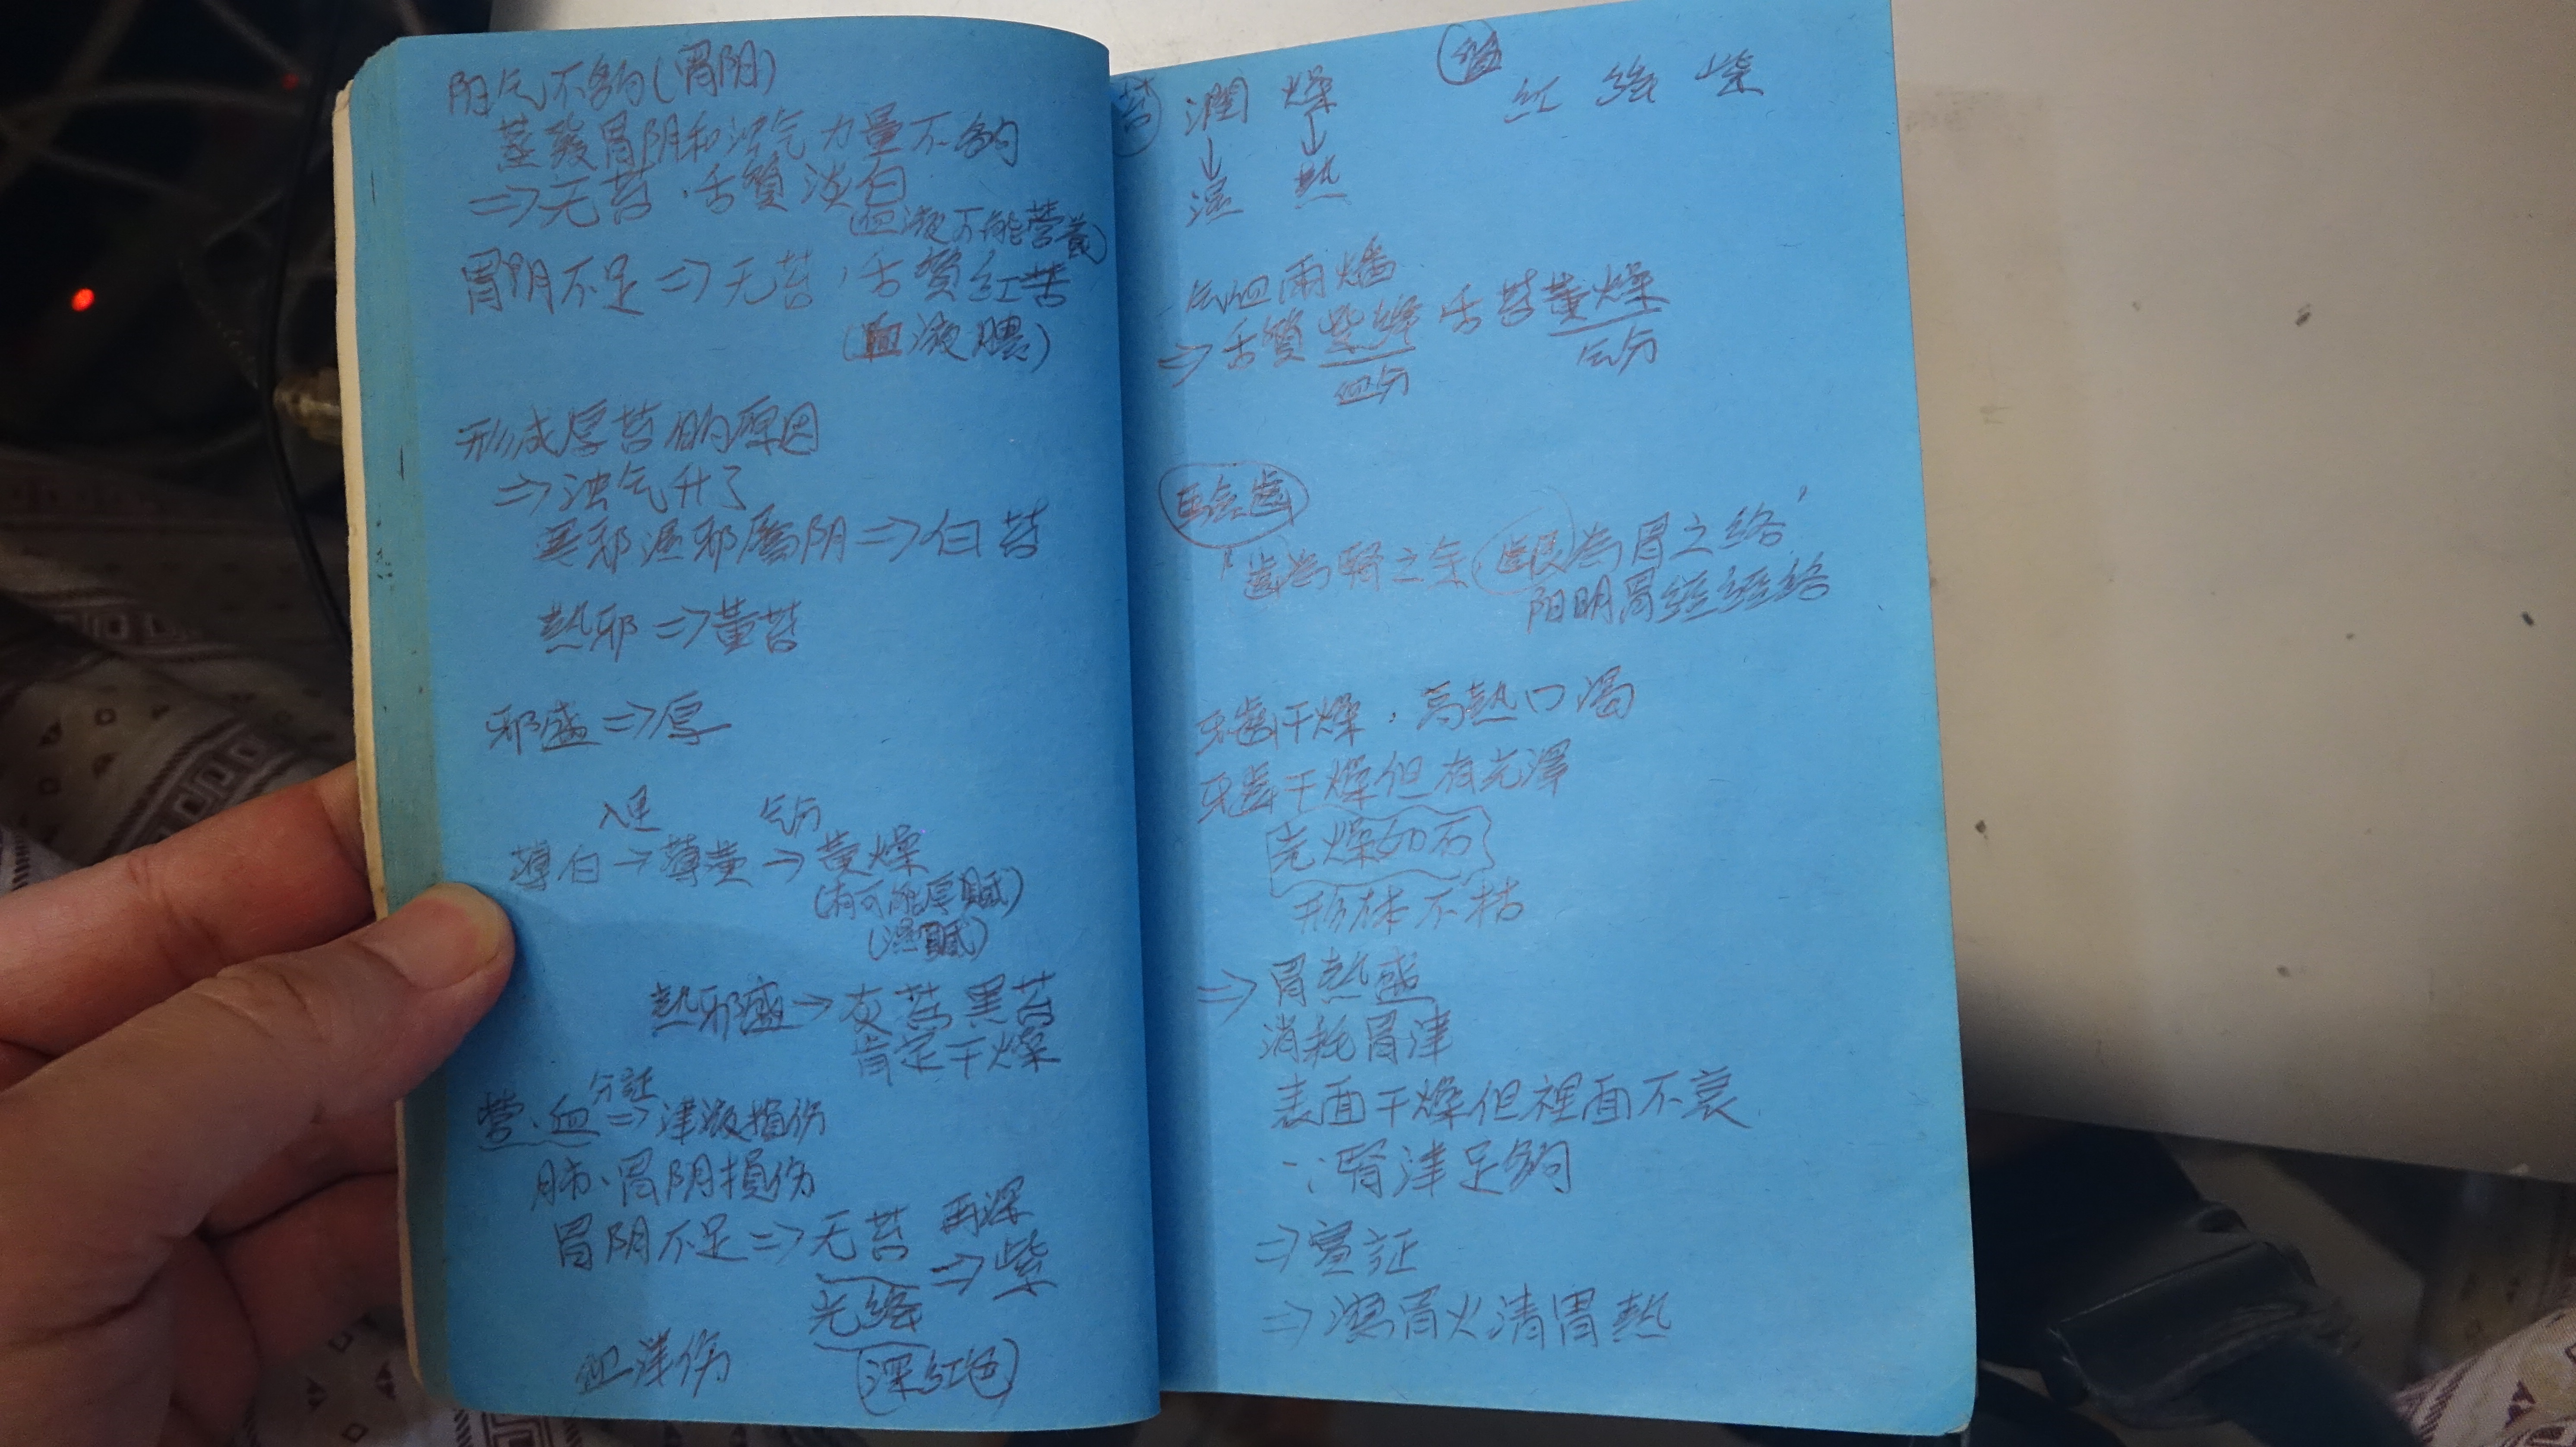 阳气不夠(胃阳)
蒸發胃阴和浊气力量不夠
⇒无苔,舌質淡白
(血液不能营養)
胃阴不足⇒无苔,舌質红
(血液膿)
形成厚苔的原因
⇒浊气升了
寒邪湿邪屬阴⇒白苔
熱邪⇒黃苔
邪盛⇒厚
入里 气分
薄白→薄黃→黄燥
(有可能厚膩)
(湿膩)
熱邪盛→灰苔黑苔
肯定干燥
营、血分証⇒津液損伤
肺、胃阴損伤
胃阴不足⇒无苔 再深⇒紫
光絳
(深红色)
血津伤
苔 潤 燥 红 絳 紫
↓ ↓
湿 熱
气血兩燔
⇒舌質紫絳 舌苔黄燥
血分 气分
驗齒
「齒為腎之余,齦為胃之络」
阳明胃经经络
牙齒干燥,高熱口渴
牙齒干燥但有光澤
光燥如石
形体不枯
⇒胃熱盛
消耗胃津
表面干燥但裡面不衰
∵腎津足夠
⇒實証
⇒瀉胃火清胃熱